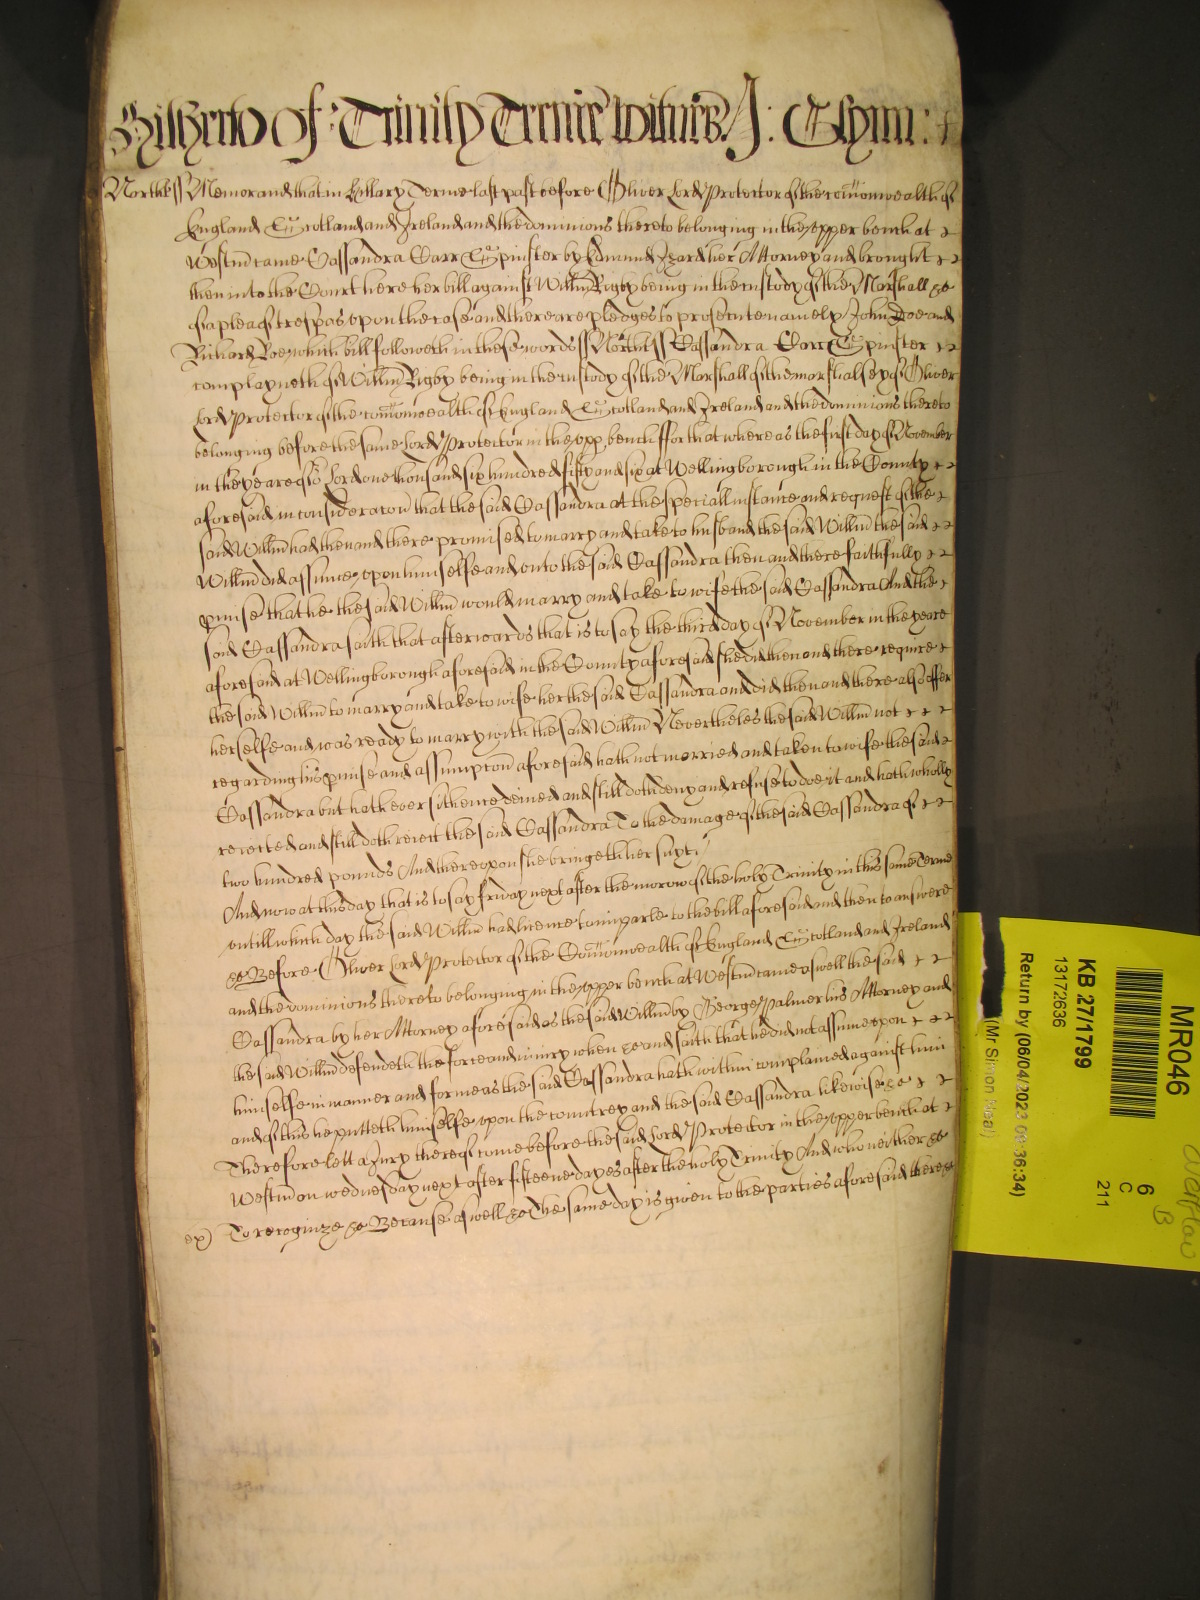 Hitherto of: Trinity Terme Witnes: J: Glynn:
Northt ss Memorand that in Hillary Terme last past before Oliver Lord Protector of the comonwealth of
England Scotland and Ireland and the dominions thereto belonging in the upper bench at
Westm came Cassandra Carr Spinster by Edmund Izard her Attorney and brought
then into the Court here her bill against Willm Rigby being in the custody of the Marshall &c
of a plea of trespas upon the case and there are pledges to prosecute namely John Doe and
Richard Roe which bill followeth in these words ss Northt ss Cassandra Carr Spinster
complayneth of Willm Rigby being in the custody of the Marshall of the marshalsey of Oliver
Lord Protector of the comonwealth of England Scotland and Ireland and the dominions thereto
belonging before the same Lord Protector in the upp bench ffor that whereas the first day of November
in the yeare of o Lord one thousand six hundred fifty and six at Wellingborough in the County
aforesaid in consideracon that the said Cassandra at the speciall instance and request of the
said Willm had then and there promised to marry and take to husband the said Willm the said
Willm did assume upon himselfe and unto the said Cassandra then and there faithfully
pmise that he the said Willm would marry and take to wife the said Cassandra And the
said Cassandra saith that afterwards that is to say the third day of November in the yeare
aforesaid at Wellingborough aforesaid in the County aforesaid she did then and there require
the said Willm to marry and take to wife her the said Cassandra and did then and there also offer
herselfe and was ready to marry with the said Willm Nevertheles the said Willm not
regarding his pmise and assumpcon aforesaid hath not married and taken to wife the said
Cassandra but hath ever sithence denied and still doth deny and refuse to doe it and hath wholly
reiected and still doth reiect the said Cassandra To the damage of the said Cassandra of
two hundred pounds And thereupon she bringeth her suyt /
And now at this day that is to say friday next after the morow of the holy Trinity in this same Terme
untill which day the said Willm had licence to imparle to the bill aforesaid and then to answere
&c Before Oliver Lord Protector of the Comonwealth of England Scotland and Ireland
and the dominions thereto belonging in the upper bench at Westm came aswell the said
Cassandra by her Attorney aforesaid as the said Willm by George Palmer his Attorney and
the said Willm defendeth the force and iniury when &c and saith that he did not assume upon
himselfe in manner and forme as the said Cassandra hath within complained against him
and of this he putteth himselfe upon the countrey and the said Cassandra likewise &c
Therefore lett a Jury thereof come before the said Lord Protector in the upper bench at
Westm on wednesday next after fifteene dayes after the holy Trinity And who neither &c
ex) To recognize &c Because aswell &c The same day is given to the parties aforesaid there &c
MR046
6
C
211
KB 27/1799
13172636
Return by (06/04/2023 09:36:34)
(Mr Simon Neal)